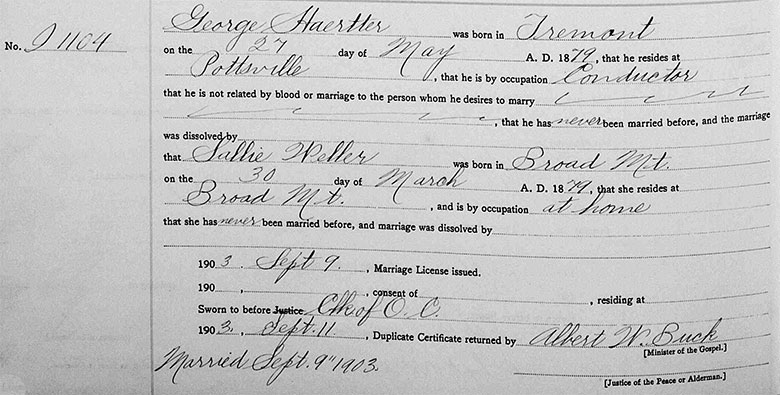 George Haertter was born in Tremont
No. J 1104
on the 27 day of May A. D. 1879, that he resides at
Pottsville, that he is by occupation Conductor
that he is not related by blood or marriage to the person whom he desires to marry
, that he has never been married before, and the marriage
was dissolved by
that Sallie Weller was born in Broad Mt.
on the 30 day of March A. D. 1879, that she resides at
Broad Mt., and is by occupation at home
that she has never been married before, and marriage was dissolved by
1903. Sept 9., Marriage License issued.
190 , , consent of , residing at
Sworn to before Justice Clk of O. C.
1903, Sept. 11, Duplicate Certificate returned by Albert W. Buck
[Minister of the Gospel.]
Married Sept. 9" 1903.
[Justice of the Peace or Alderman.]